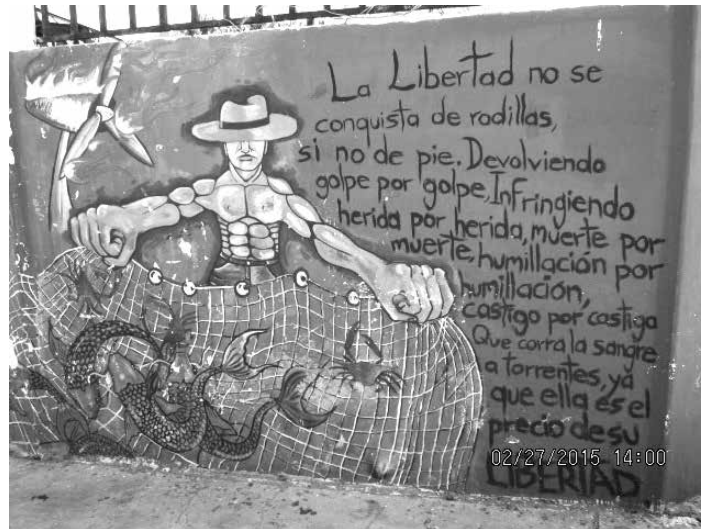 La Libertad no se
conquista de rodillas,
si no de pie. Devolviendo
golpe por golpe, Infringiendo
herida por herida, muerte por
muerte, humillación por
humillación,
castigo por castigo
Que corra la sangre
a torrentes, ya
que ella es el
precio de su
LIBERTAD
02/27/2015 14:00